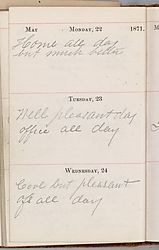 May Monday, 22 1871.
Home all day
but much better
Tuesday, 23
Well pleasant day
office all day
Wednesday, 24
Cool but pleasant
all day